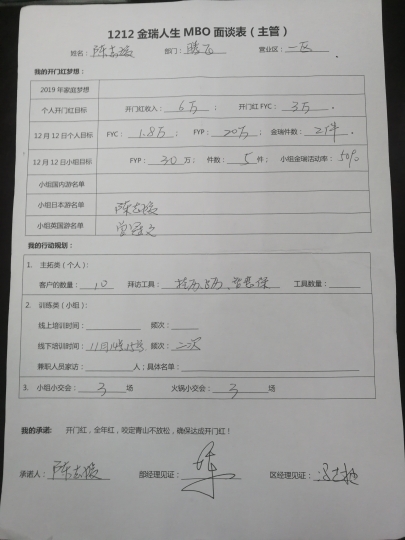 1212 金瑞人生 MBO 面谈表（主管）
姓名： 部门：腾飞 营业区：一区
我的开门红梦想：
2019 年家庭梦想
个人开门红目标 开门红收入：6万； 开门红 FYC：3万.
12 月 12 日个人目标 FYC：1.8万； FYP：20万 金瑞件数：2件.
12 月 12 日小组目标 FYP：30万； 件数：5件； 小组金瑞活动率：50%
小组国内游名单
小组日本游名单
小组英国游名单
我的行动规划：
1. 主拓类（个人）：
客户的数量：10 拜访工具： 工具数量：
2. 训练类（小组）：
线上培训时间： 频次：
线下培训时间： 频次：二次
兼职人员家访： 人；具体名单：
3. 小组小交会：3场 火锅小交会：3场
我的承诺： 开门红，全年红，咬定青山不放松，确保达成开门红！
承诺人： 部经理见证： 区经理见证：